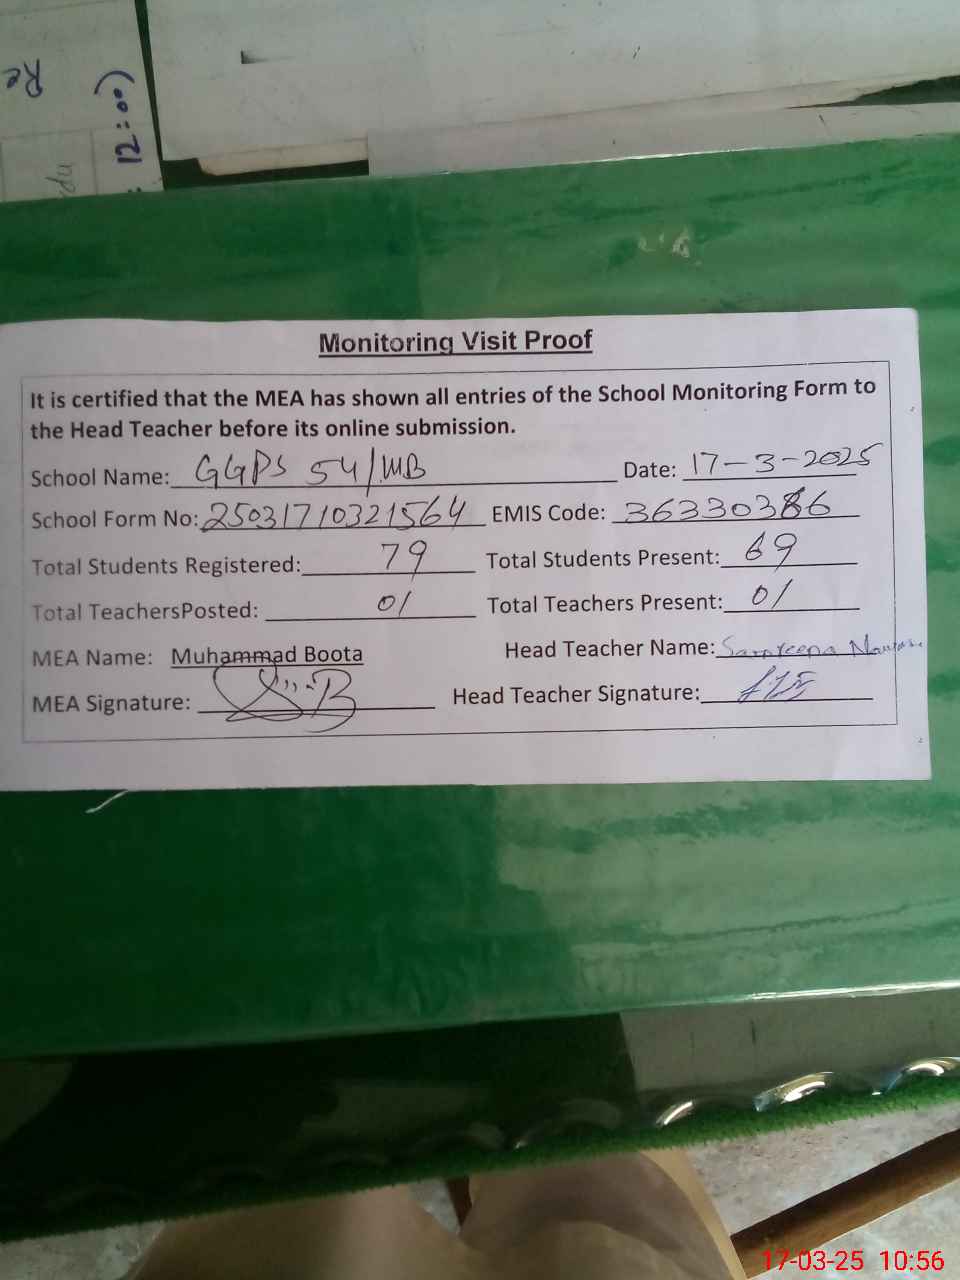 Re
12:00)
Monitoring Visit Proof
It is certified that the MEA has shown all entries of the School Monitoring Form to
the Head Teacher before its online submission.
School Name: GGPS 54/MB Date: 17-3-2025
School Form No: 25031710321564 EMIS Code: 36330386
Total Students Registered: 79 Total Students Present: 69
Total TeachersPosted: 01 Total Teachers Present: 01
MEA Name: Muhammad Boota Head Teacher Name:
MEA Signature: Head Teacher Signature:
17-03-25 10:56